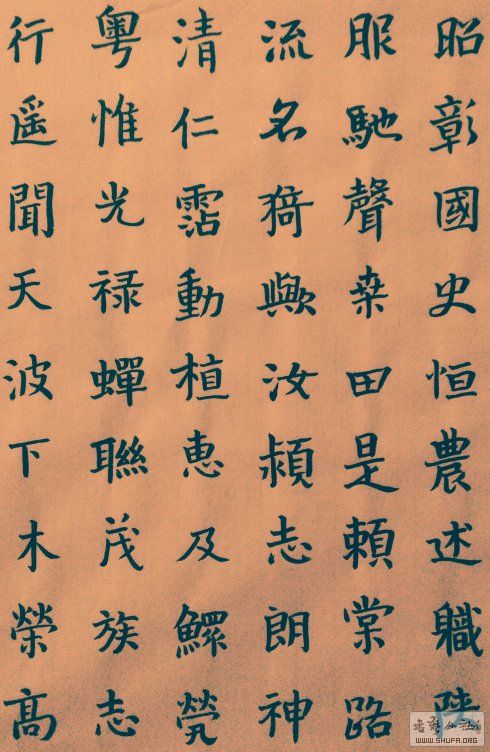 昭彰國史恒農述職陝
服馳聲桒田是頼棠路
流名猗歟汝潁志朗神
清仁霑動植恵及鰥煢
粵惟光禄蟬聯茂族志
行遥聞天波下木榮髙
WWW.SHUFA.ORG